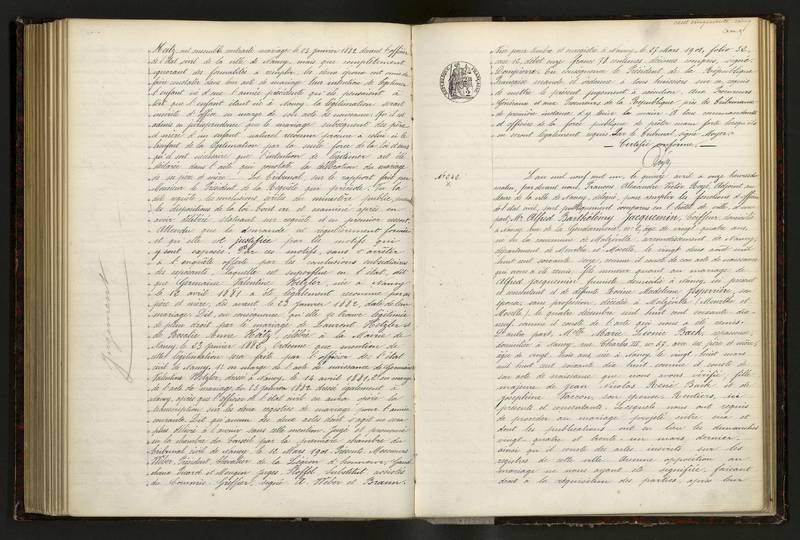 Metz, ont ensuite contracté mariage le 23 janvier 1882 devant l'officier
de l'État civil de la ville de Nancy, mais que complètement
ignorant des formalités à remplir les deux époux ont omis de
faire constater dans leur acte de mariage leur intention de légitimer
l'enfant né d'eux l'année précédente qu'ils pensaient à
tort que l'enfant étant né à Nancy la légitimation serait
inscrite d'office en marge de son acte de naissance. Or il est
admis en jurisprudence que le mariage subséquent des père
et mère d'un enfant naturel reconnu procure à celui-ci le
bienfait de la légitimation par la seule force de la loi et sans
qu'il soit nécessaire que l'intention de légitimer ait été
déclarée dans l'acte qui constate la célébration du mariage
de ses père et mère. Le Tribunal, sur le rapport fait par
Monsieur le Président de la Requête qui précède. Vu la
dite requête, les conclusions écrites du ministère public,
les dispositions de la loi. Ouï et examiné après en
avoir délibéré, statuant sur requête et en premier ressort.
Attendu que la demande est régulièrement formée
et qu'elle est justifiée par les motifs qui
y sont exposés. Par ces motifs, sans s'arrêter
à l'enquête offerte par les conclusions subsidiaires
des exposants, laquelle est superflue en l'état, dit
que Germaine Valentine Hetzler, née à Nancy
le 12 avril 1881 a été légalement reconnue par ses
père et mère, dès avant le 23 janvier 1882, date de leur
mariage. Dit, en conséquence, qu'elle se trouve légitimée
de plein droit par le mariage de Laurent Hetzler et
de Rosalie Anne Hertz, célébré à la Mairie de
Nancy le 23 janvier 1882, Ordonne que mention de
cette légitimation sera faite par l'officier de l'état
civil de Nancy, 1° en marge de l'acte de naissance de Germaine
Valentine Hetzler, dressé à Nancy, le 14 avril 1881, 2° en marge
de l'acte de mariage du 23 janvier 1882 dressé également à
Nancy, après que l'officier de l'état civil en aura opéré la
transcription sur les deux registres de mariage pour l'année
courante. Dit qu'aucun des deux actes dont s'agit ne sera
plus délivré à l'avenir sans cette mention. Jugé et prononcé
en la chambre du Conseil par la première chambre du
tribunal civil de Nancy le 12 Mars 1901. Présents: Messieurs
Wéber, Président, Chevalier de la Légion d'honneur,
juges, Substitut, assistés
de Commis Greffier, signé A. Wéber et Braun.
Jugement
Visé pour timbre et enregistré à Nancy, le 27 Mars 1901, folio 32,
case 12, débet onze francs 78 centimes, décimes compris, signé:
Dompierre. En conséquence le Président de la République
Française mande et ordonne à tous huissiers sur ce requis
de mettre le présent jugement à exécution. Aux Procureurs
Généraux et aux Procureurs de la République près les Tribunaux
de première instance d'y tenir la main. A tous commandants
et officiers de la force publique de prêter main forte lorsqu'ils
en seront légalement requis. Par le Tribunal, signé Moyen.
Certifié conforme.
N° 242
L'an mil neuf cent un, le quinze avril à onze heures du
matin, par devant nous, François Alexandre Victor Hoyé, Adjoint au
Maire de la ville de Nancy, délégué pour remplir les fonctions d'officier
de l'état civil, sont publiquement comparus en l'hôtel de ville, d'une
part, Mr Alfred Barthélémy Jacquemin, Coiffeur, domicilié
à Nancy, rue de la Gendarmerie, n° 2, âgé de vingt quatre ans,
né en la commune de Malzéville, arrondissement de Nancy,
département de Meurthe et Moselle, le vingt deux août mil
huit cent soixante seize, comme il conste de son acte de naissance
qui nous a été remis. Fils mineur quant au mariage de
Alfred Jacquemin, fumiste domicilié à Nancy, ici présent
et consentant et de défunte Louise Madeleine, son
épouse, sans profession, décédée à Malzéville (Meurthe et
Moselle) le quatre décembre mil huit cent soixante dix
neuf comme il conste de l'acte qui nous a été remis.
D'autre part, Melle Marie Léonie Bach, repasseuse,
domiciliée à Nancy, rue Charles III, n° 67, avec ses père et mère,
âgée de vingt trois ans, née à Nancy, le vingt huit mars
mil huit cent soixante dix huit comme il conste de
son acte de naissance que nous avons vérifié, fille
majeure de Jean Nicolas René Bach et de
Joséphine Vacron, son épouse, Rentiers, ici
présents et consentants. Lesquels nous ont requis
de procéder au mariage projeté entre eux et
dont les publications ont eu lieu les dimanches
vingt-quatre et trente-un mars dernier,
ainsi qu'il conste des actes inscrits sur les
registres de cette ville. Aucune opposition au
mariage ne nous ayant été signifiée, faisant
droit à la réquisition des parties, après leur